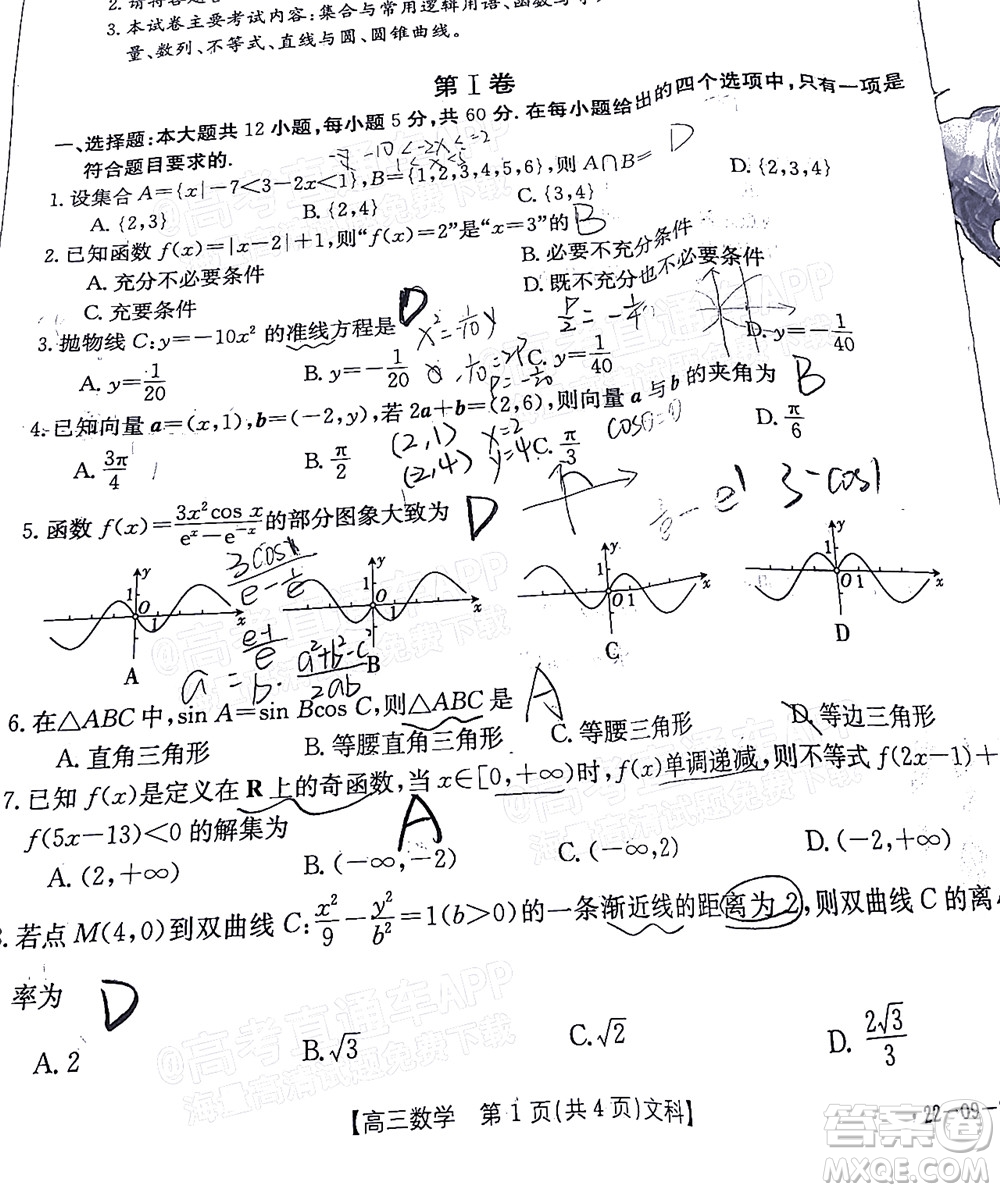 3. 本试卷主要考试内容:集合与常用逻辑用语、函数与导
量、数列、不等式、直线与圆、圆锥曲线。
第Ⅰ卷
一、选择题:本大题共12小题,每小题5分,共60分.在每小题给出的四个选项中,只有一项是
符合题目要求的.
-10<-2x<-2
1<x<5
1. 设集合A={x|-7<3-2x<1},B={1,2,3,4,5,6},则A∩B= D
A. {2,3} B. {2,4} C. {3,4} D. {2,3,4}
2. 已知函数 f(x)=|x-2|+1,则“f(x)=2”是“x=3”的 B
A. 充分不必要条件 B. 必要不充分条件
C. 充要条件 D. 既不充分也不必要条件
3. 抛物线C:y=-10x²的准线方程是 D
A. y=1/20 B. y=-1/20 C. y=1/40 D. y=-1/40
4. 已知向量a=(x,1),b=(-2,y),若2a+b=(2,6),则向量a与b的夹角为 B
A. 3π/4 B. π/2 C. π/3 D. π/6
(2,1) x=2
(2,4) y=4
cosθ=0
5. 函数 f(x)=3x²cos x/(eˣ-e⁻ˣ)的部分图象大致为 D
3cos1/(e-1/e)
3-cos1
y 1 O x A
y 1 O 1 x B
y 1 O 1 x C
y 1 O 1 x D
a=b·(a²+b²-c²)/2ab
6. 在△ABC中,sin A=sin Bcos C,则△ABC是 A
A. 直角三角形 B. 等腰直角三角形 C. 等腰三角形 D. 等边三角形
7. 已知 f(x)是定义在R上的奇函数,当x∈[0,+∞)时,f(x)单调递减,则不等式 f(2x-1)+
f(5x-13)<0的解集为 A
A. (2,+∞) B. (-∞,-2) C. (-∞,2) D. (-2,+∞)
8. 若点M(4,0)到双曲线C:x²/9-y²/b²=1(b>0)的一条渐近线的距离为2,则双曲线C的离心
率为 D
A. 2 B. √3 C. √2 D. 2√3/3
【高三数学 第1页(共4页)文科】
22-09-
@高考直通车APP
海量高清试题免费下载
答案圈
MXQE.COM